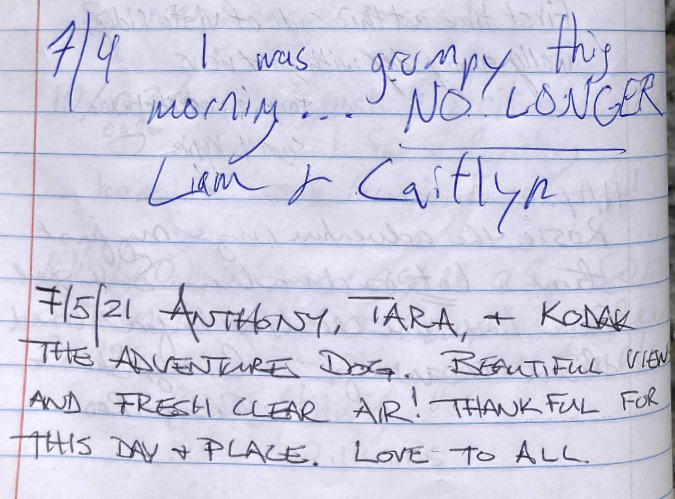 7/4 I was grumpy this
morning... NO LONGER
Liam & Caitlyn
7/5/21 ANTHONY, TARA, + KODAK
THE ADVENTURE DOG. BEAUTIFUL VIEW
AND FRESH CLEAR AIR! THANKFUL FOR
THIS DAY + PLACE. LOVE TO ALL.